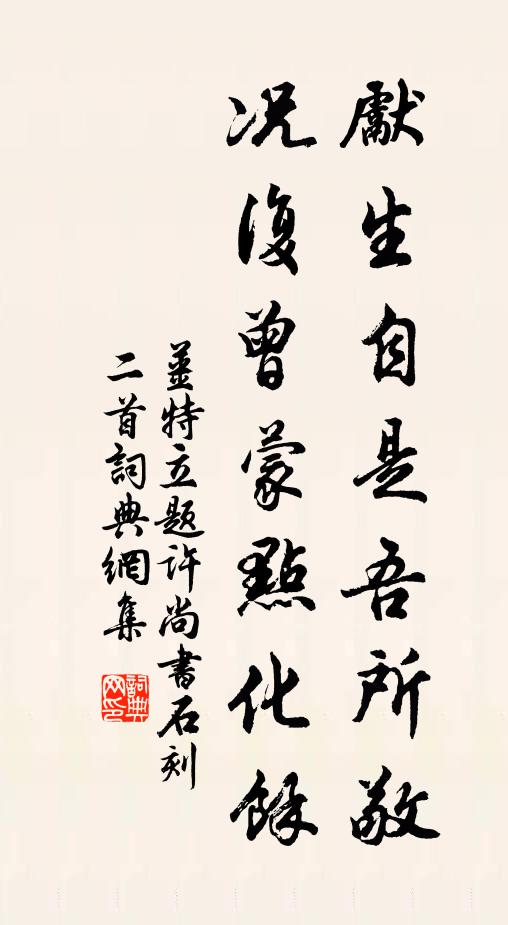 獻生自是吾所敬
况復曾蒙點化餘
姜特立題許尚書石刻
二首詞典網集
詞典網印